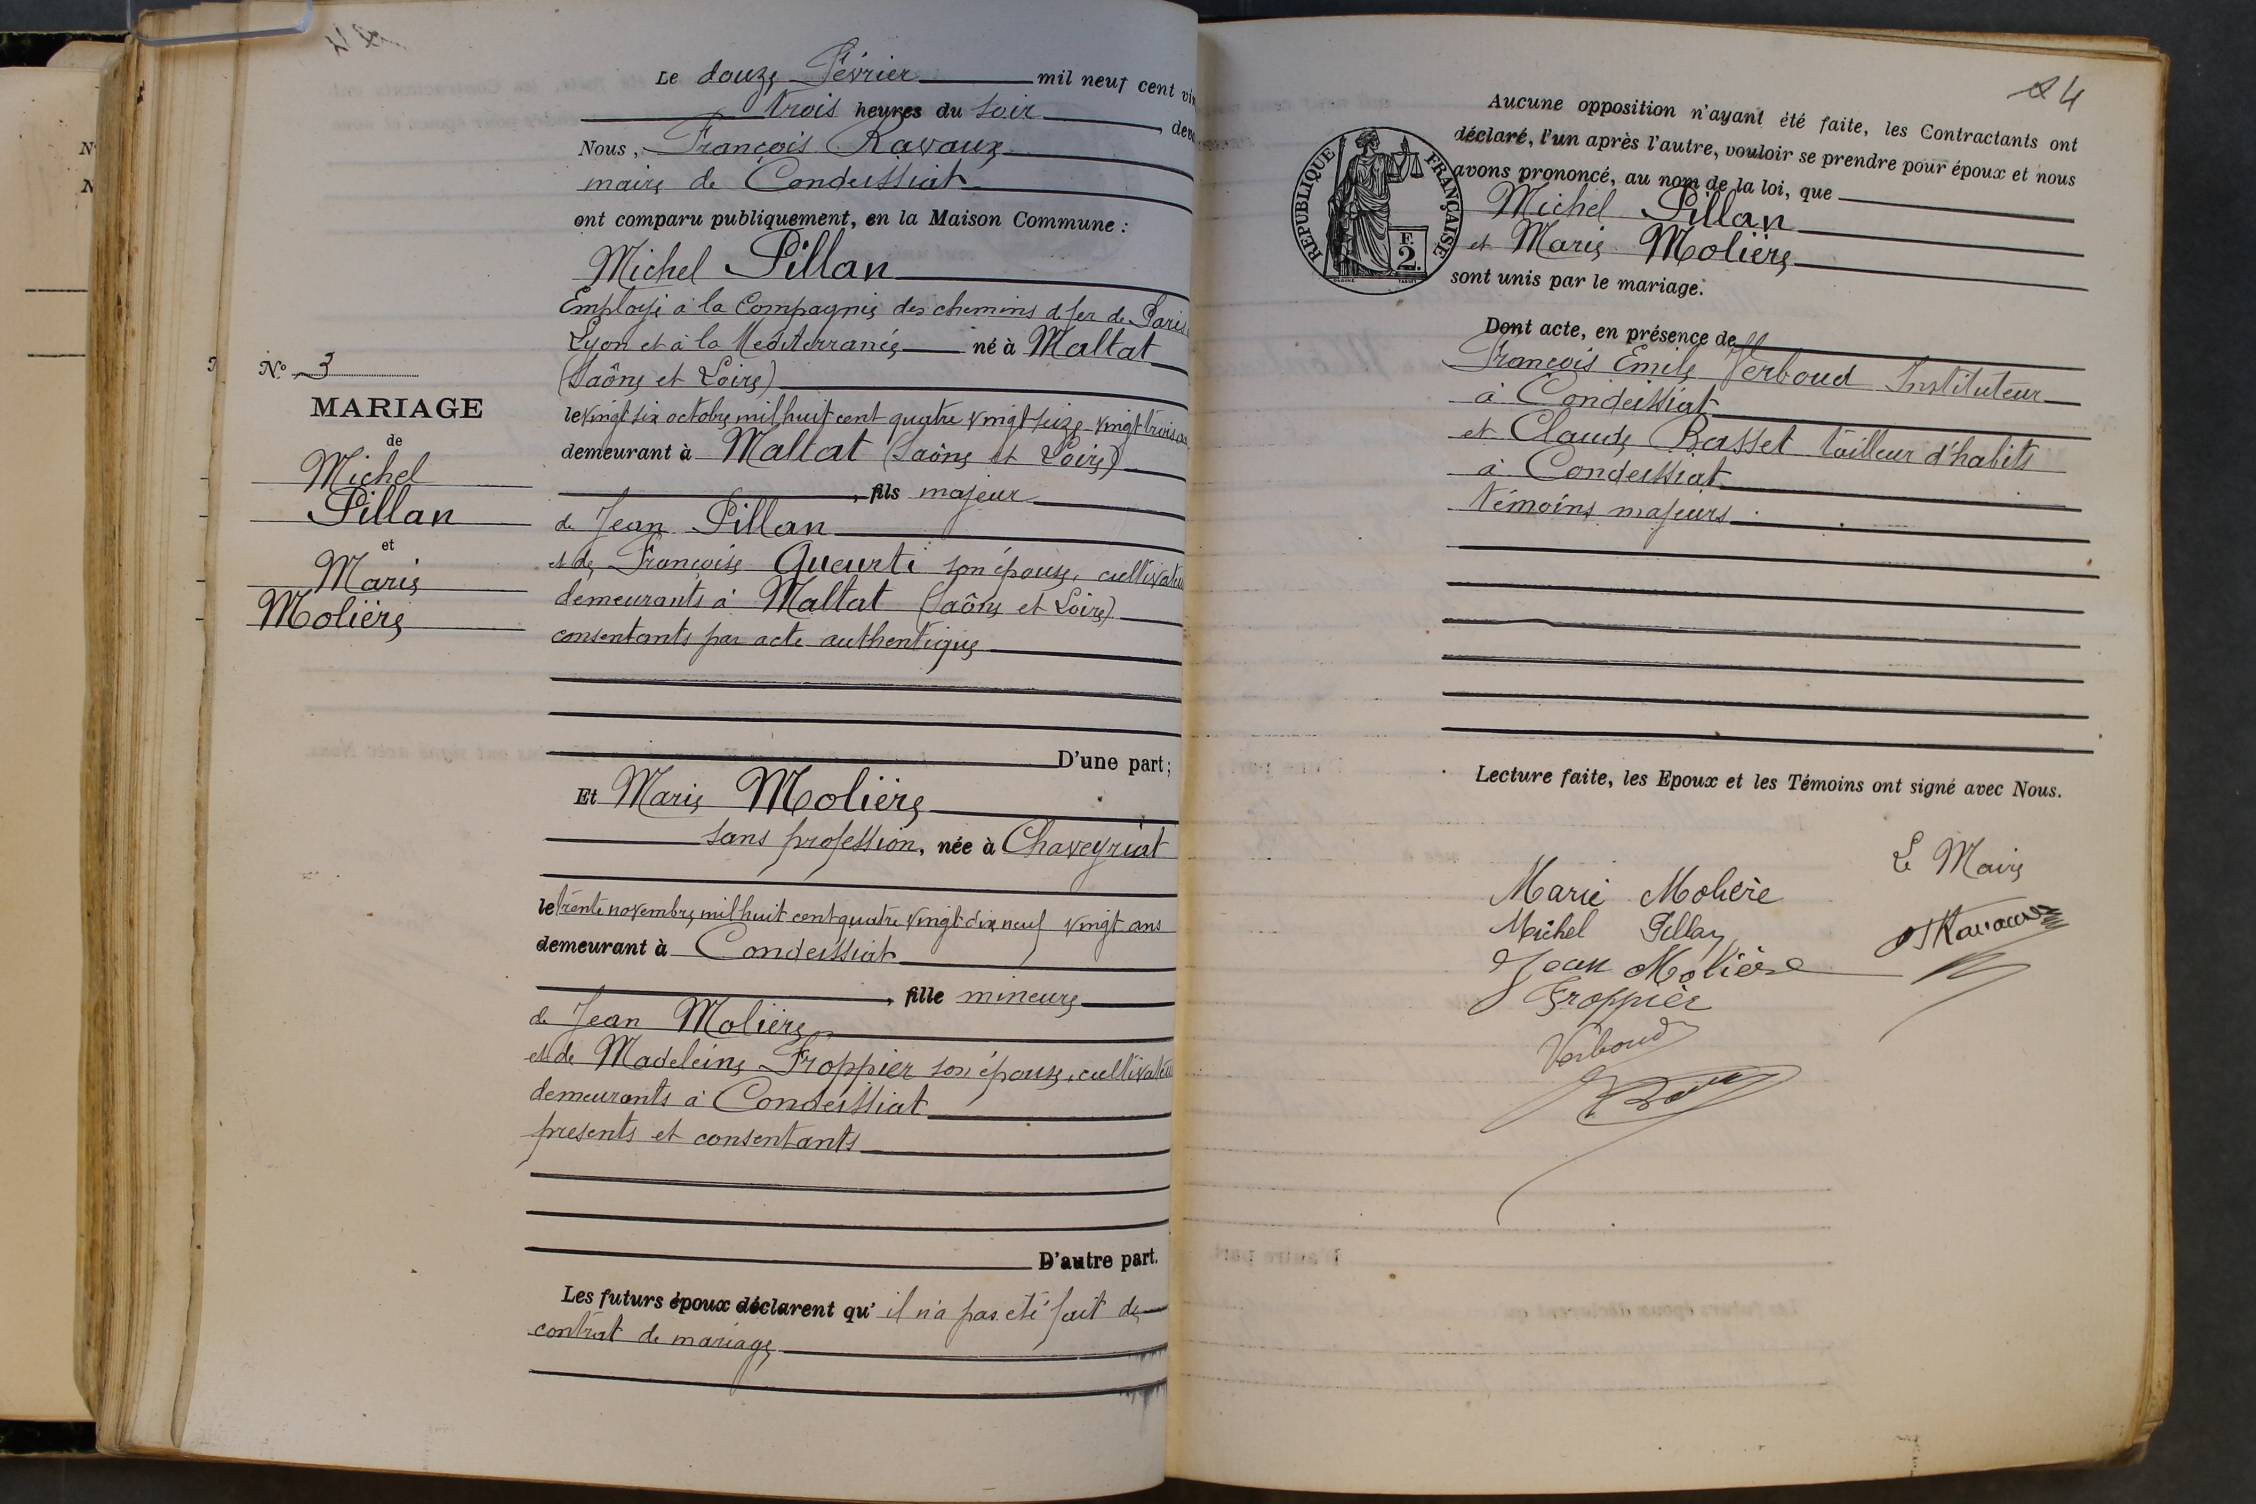 Le douze Février mil neuf cent
trois heures du soir
Nous, François Ravaux
maire de Condeissiat
ont comparu publiquement, en la Maison Commune :
Michel Pillan
Employé à la Compagnie des chemins d fer de Paris
Lyon et à la Mediterranée né à Maltat
(Saône et Loire)
le vingt six octobre mil huit cent quatre vingt seize vingt trois ans
demeurant à Maltat (Saône et Loire)
, fils majeur
de Jean Pillan
et de Françoise Queurti son épouse, cultivate
demeurants à Maltat (Saône et Loire)
consentants par acte authentique
D'une part ;
Et Marie Molière
sans profession, née à Chaveyriat
le trente novembre mil huit cent quatre vingt dix neuf vingt ans
demeurant à Condeissiat
, fille mineure
de Jean Molière
et de Madeleine Froppier son épouse, cultivate
demeurants à Condeissiat
presents et consentants
D'autre part.
Les futurs époux déclarent qu' il n'a pas été fait de
contrat de mariage
N° 3
MARIAGE
de
Michel
Pillan
et
Marie
Molière
4
Aucune opposition n'ayant été faite, les Contractants ont
déclaré, l'un après l'autre, vouloir se prendre pour époux et nous
avons prononcé, au nom de la loi, que
Michel Pillan
et Marie Molière
sont unis par le mariage.
RÉPUBLIQUE FRANÇAISE
F.
2.
Dont acte, en présence de
François Emile Verboud Instituteur
à Condeissiat
et Claude Rasset tailleur d'habits
à Condeissiat
témoins majeurs
Lecture faite, les Epoux et les Témoins ont signé avec Nous.
Le Maire
Marie Molière
Michel Pillan
Ravaux
Jean Molière
Froppier
Verboud